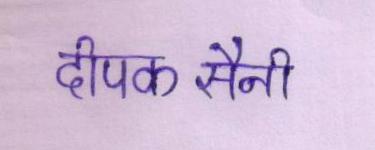 दीपक सैनी